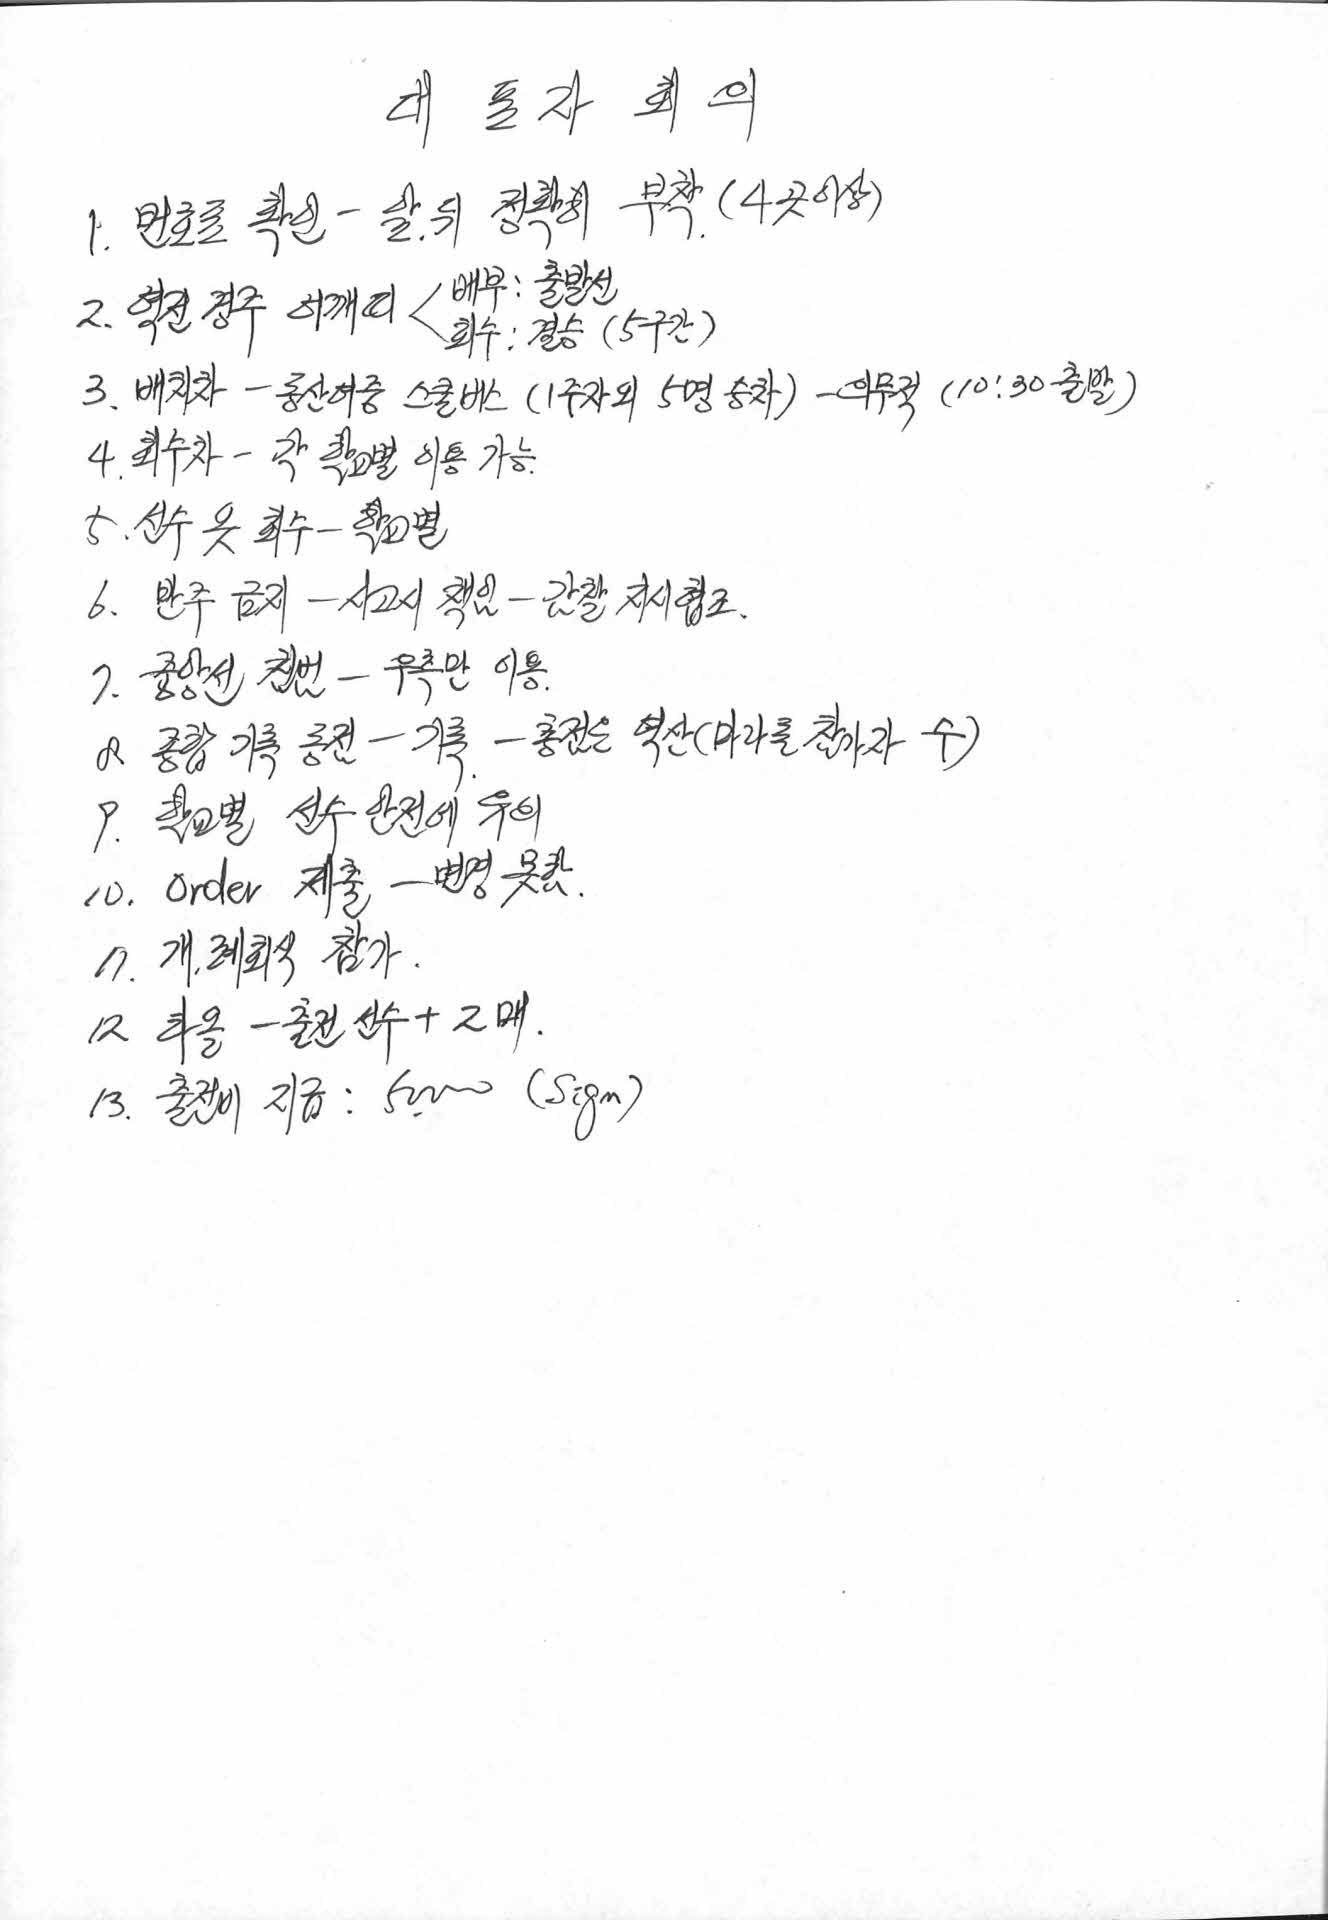 대 표 자 회 의
1. 번호표 확인 - 앞.뒤 정확히 부착. (4곳이상)
2. 역전 경주 어깨띠 < 배부 : 출발선
회수 : 결승 (5구간)
3. 배치차 - 동산여중 스쿨버스 (1주자외 5명 승차) - 의무적 (10:30 출발)
4. 회수차 - 각 학교별 이동 가능.
5. 선수 옷 회수 - 학교별
6. 반주 금지 - 사고시 책임 - 경찰 지시 협조.
7. 중앙선 침범 - 우측만 이용.
8 종합 기록 동점 - 기록. - 총점은 역산 (마라톤 참가자 수)
9. 학교별 선수 안전에 유의
10. Order 제출 - 변경 못함.
11. 개.폐회식 참가.
12 타올 - 출전 선수 + 2매.
13. 출전비 지급 : (Sign)